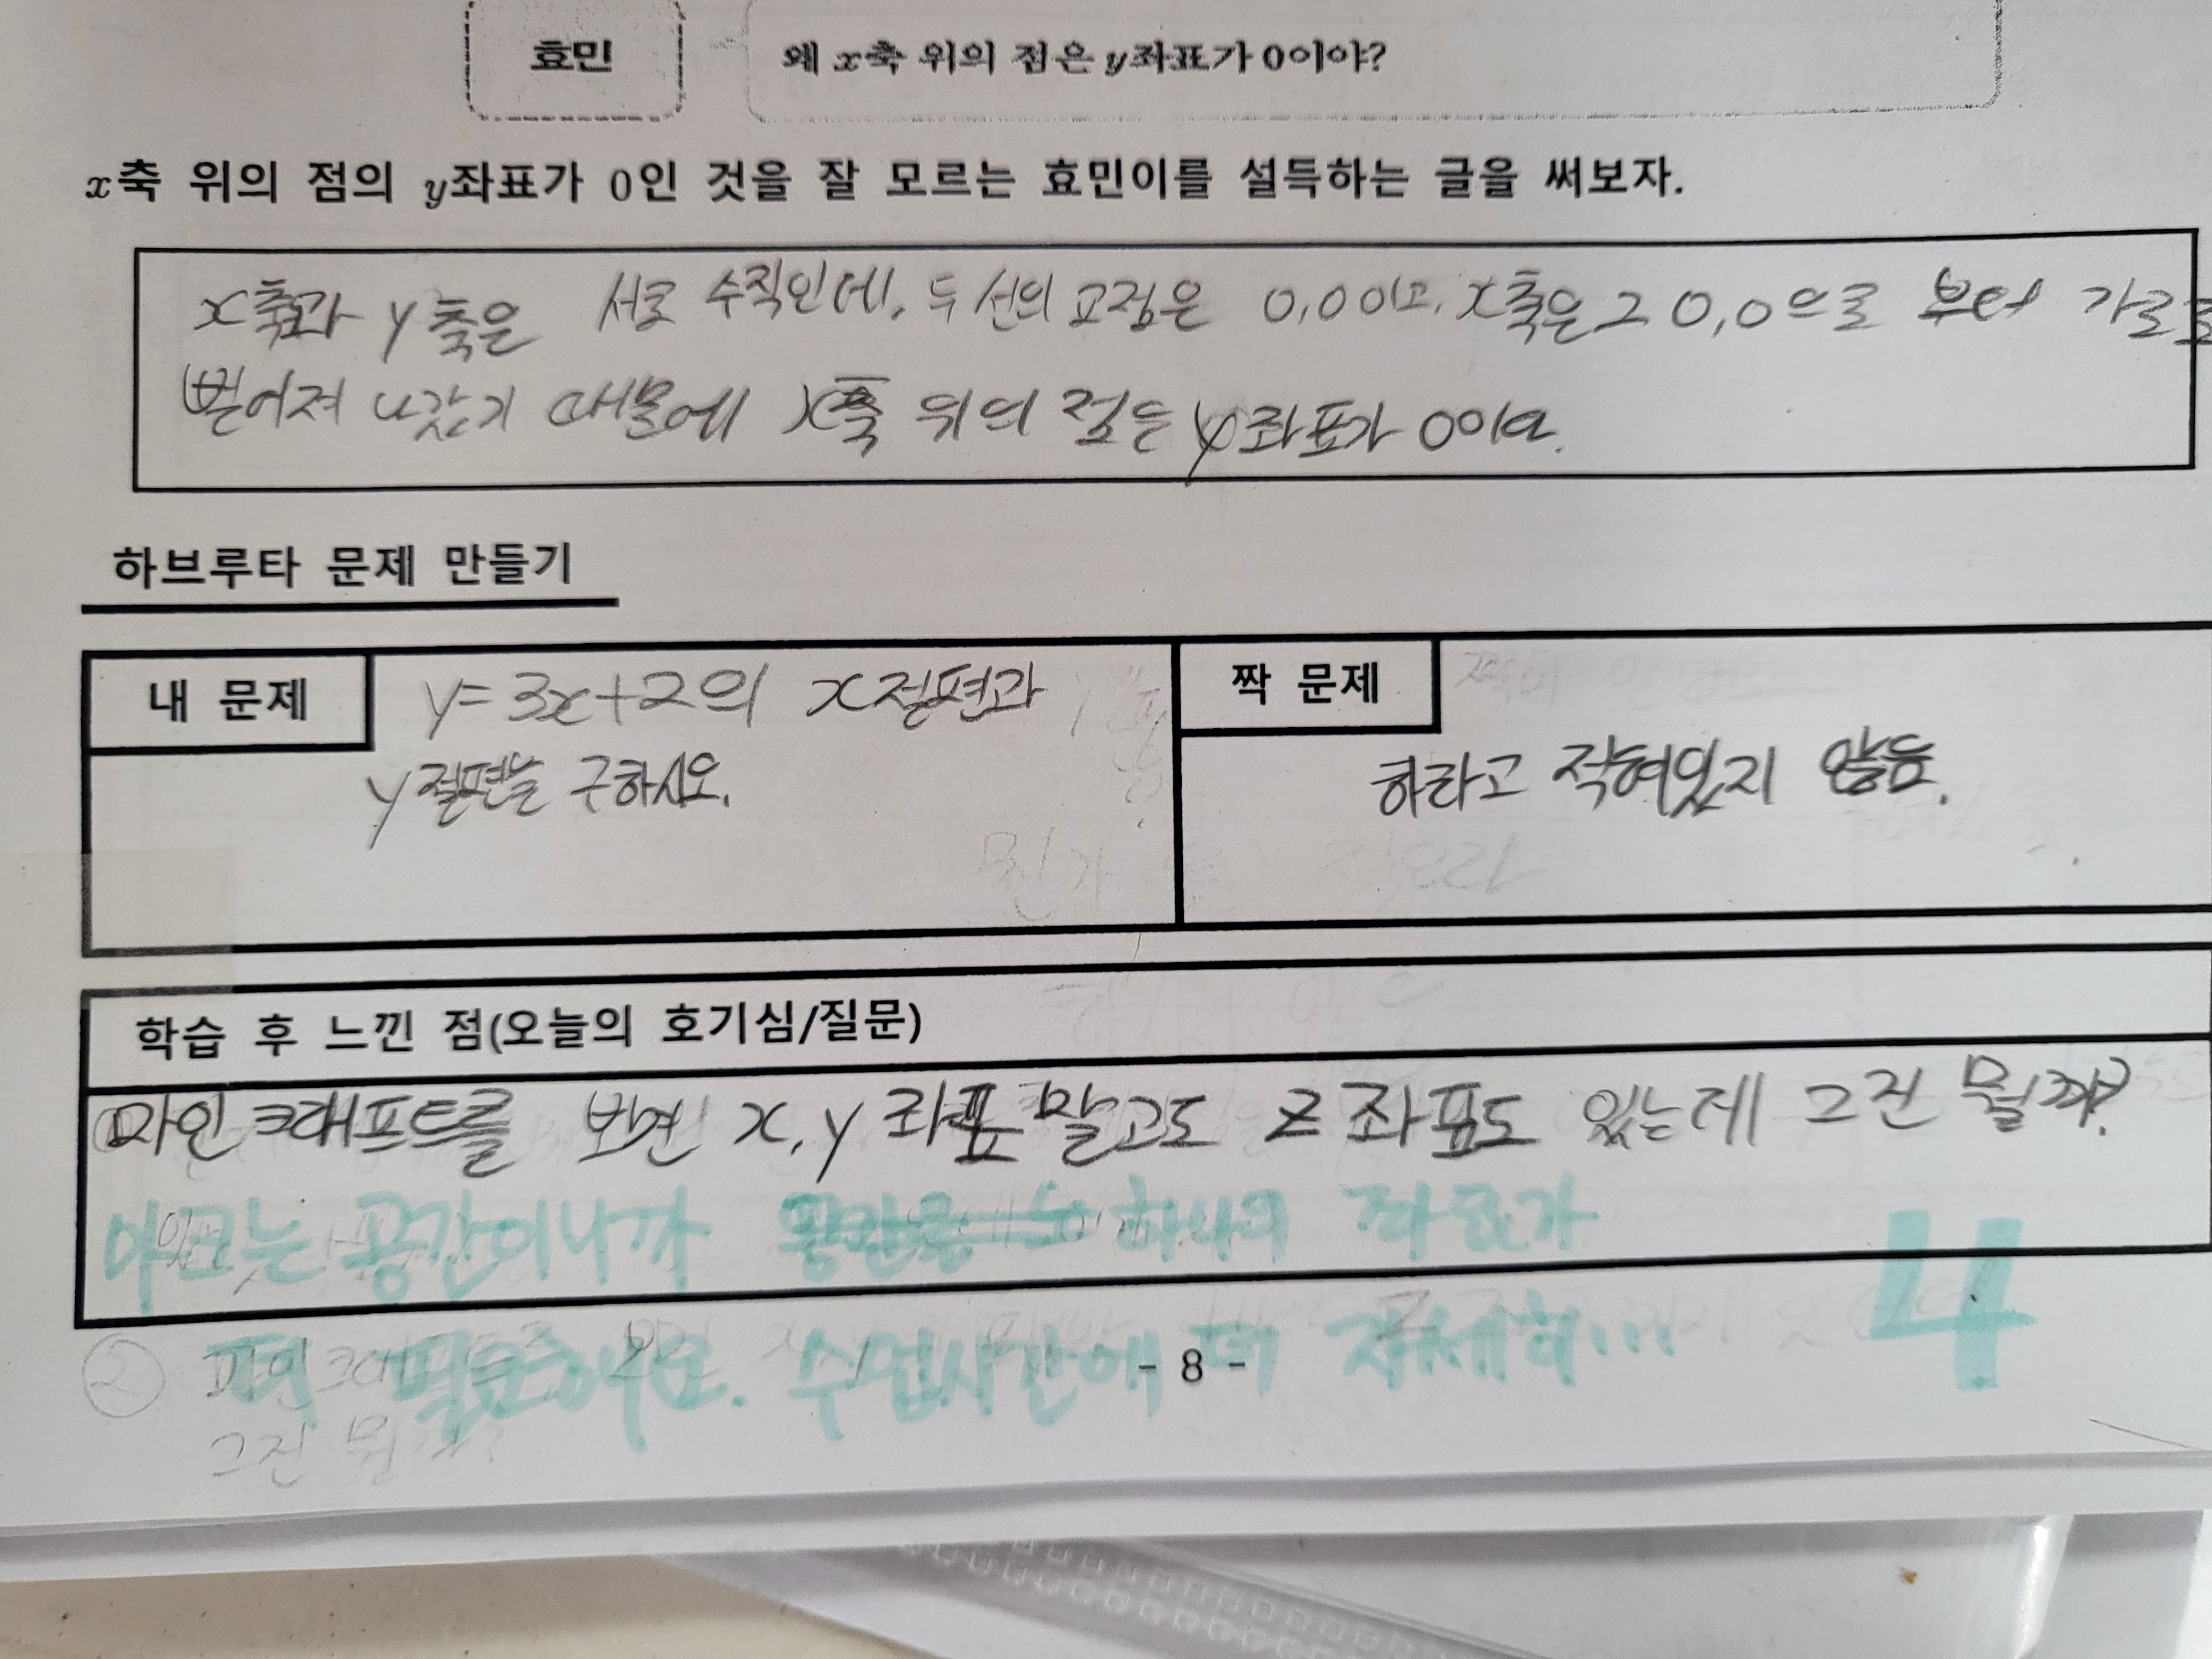 효민
왜 x축 위의 점은 y좌표가 0이야?
x축 위의 점의 y좌표가 0인 것을 잘 모르는 효민이를 설득하는 글을 써보자.
x축과 y축은 서로 수직인데, 두 선의 교점은 0,0이고, x축은 그 0,0으로 부터 가로로
뻗어져 나갔기 때문에 x축 위의 점은 y좌표가 0이야.
하브루타 문제 만들기
내 문제
y=3x+2의 x절편과
y절편을 구하시오.
짝 문제
하라고 적혀있지 않음.
학습 후 느낀 점(오늘의 호기심/질문)
마인크래프트를 보면 x,y 좌표 말고도 z 좌표도 있는데 그건 뭘까?
마크는 공간이니까 하나의 좌표가
더 필요해요. 수업시간에 더 자세히...
4
② 마인크래프트를
그건 뭘까?
- 8 -